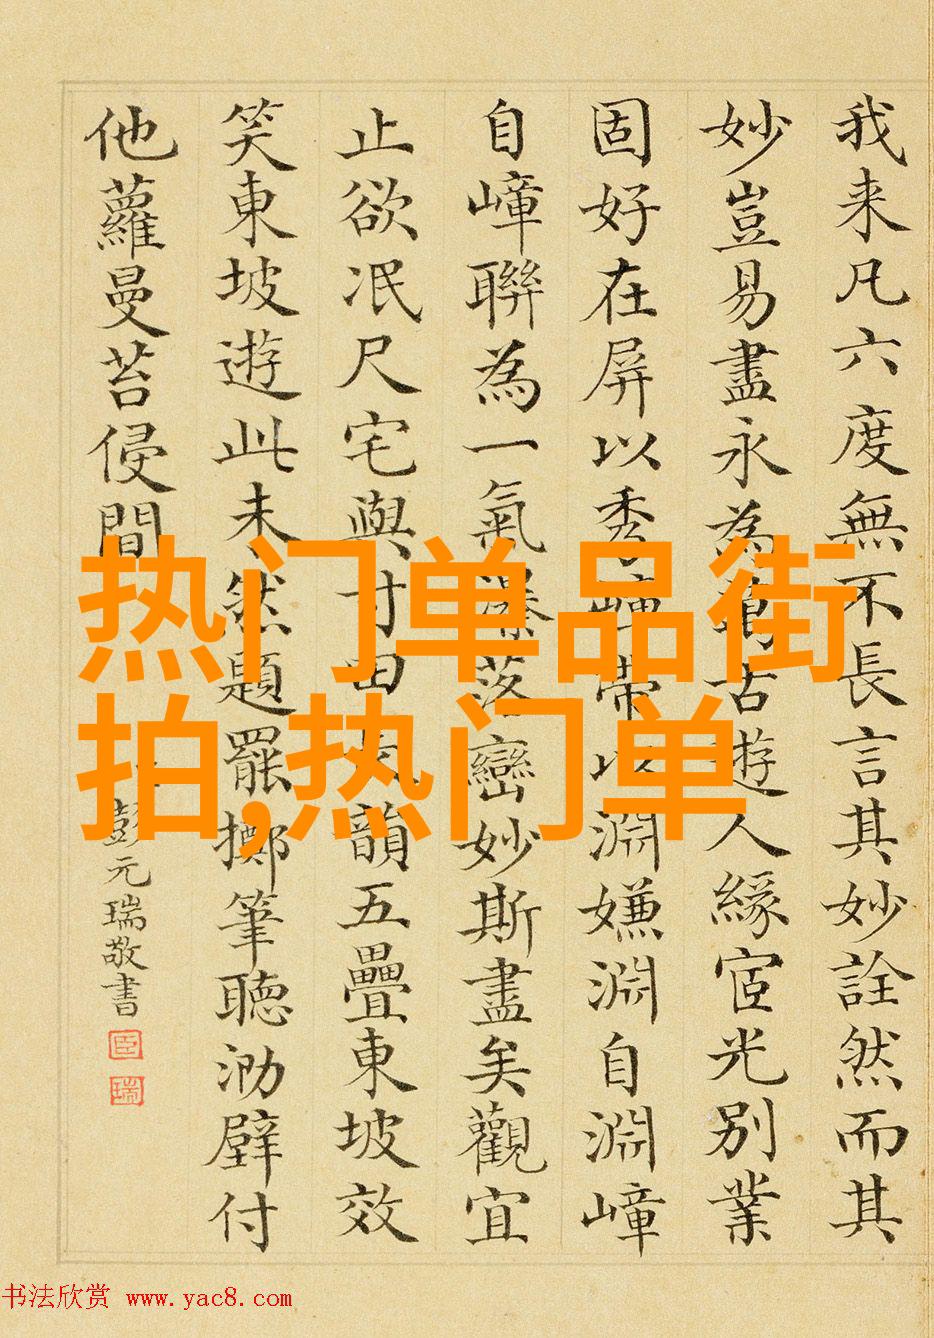 我来凡六度無不長言其妙詮然而其
妙豈易盡永為萬古遊人緣宧光別業
固好在屏以秀嶂帶以淵嫌淵自淵嶂
自嶂聯為一氣瀑落巒妙斯盡矣觀宜
止欲泯尺宅與寸田氣韻五疊東坡效
笑東坡遊此未然題罷擲筆聽泐壁付
他蘿曼苔侵間
彭元瑞敬書
臣
瑞
热门单品街
拍,热门单
书法欣赏 www.yac8.com